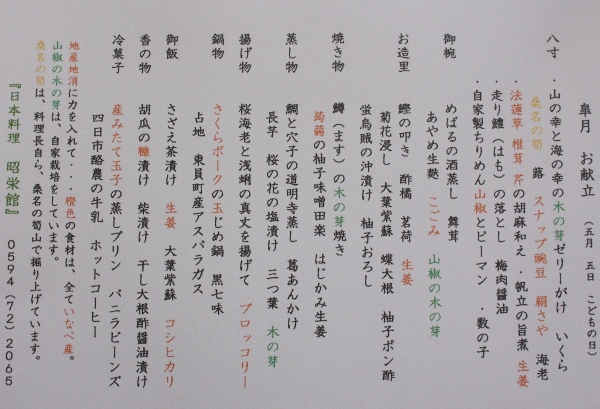 皐月　お献立　（五月　五日　こどもの日）
八寸　・山の幸と海の幸の木の芽ゼリーがけ　いくら
桑名の筍　蕗　スナップ豌豆　絹さや　海老
・法蓮草　椎茸　芹の胡麻和え　・帆立の旨煮　生姜
・走り鱧（はも）の落とし　梅肉醤油
・自家製ちりめん山椒とピーマン　・数の子
御椀　めばるの酒蒸し　舞茸
あやめ生麩　こごみ　山椒の木の芽
お造里　鰹の叩き　酢橘　茗荷　生姜
菊花浸し　大葉紫蘇　蝶大根　柚子ポン酢
蛍烏賊の沖漬け　柚子おろし
焼き物　鱒（ます）の木の芽焼き
蒟蒻の柚子味噌田楽　はじかみ生姜
蒸し物　鯛と穴子の道明寺蒸し　葛あんかけ
長芋　桜の花の塩漬け　三つ葉　木の芽
揚げ物　桜海老と浅蜊の真丈を揚げて　ブロッコリー
鍋物　さくらポークの玉じめ鍋　黒七味
占地　東員町産アスパラガス
御飯　さざえ茶漬け　生姜　大葉紫蘇　コシヒカリ
香の物　胡瓜の糠漬け　柴漬け　干し大根酢醤油漬け
冷菓子　産みたて玉子の蒸しプリン　バニラビーンズ
四日市酪農の牛乳　ホットコーヒー
地産地消に力を入れて・・・橙色の食材は、全ていなべ産。
山椒の木の芽は、自家栽培をしています。
桑名の筍は、料理長自ら、桑名の筍山で掘り上げています。
『日本料理　昭栄館』　０５９４（７２）２０６５